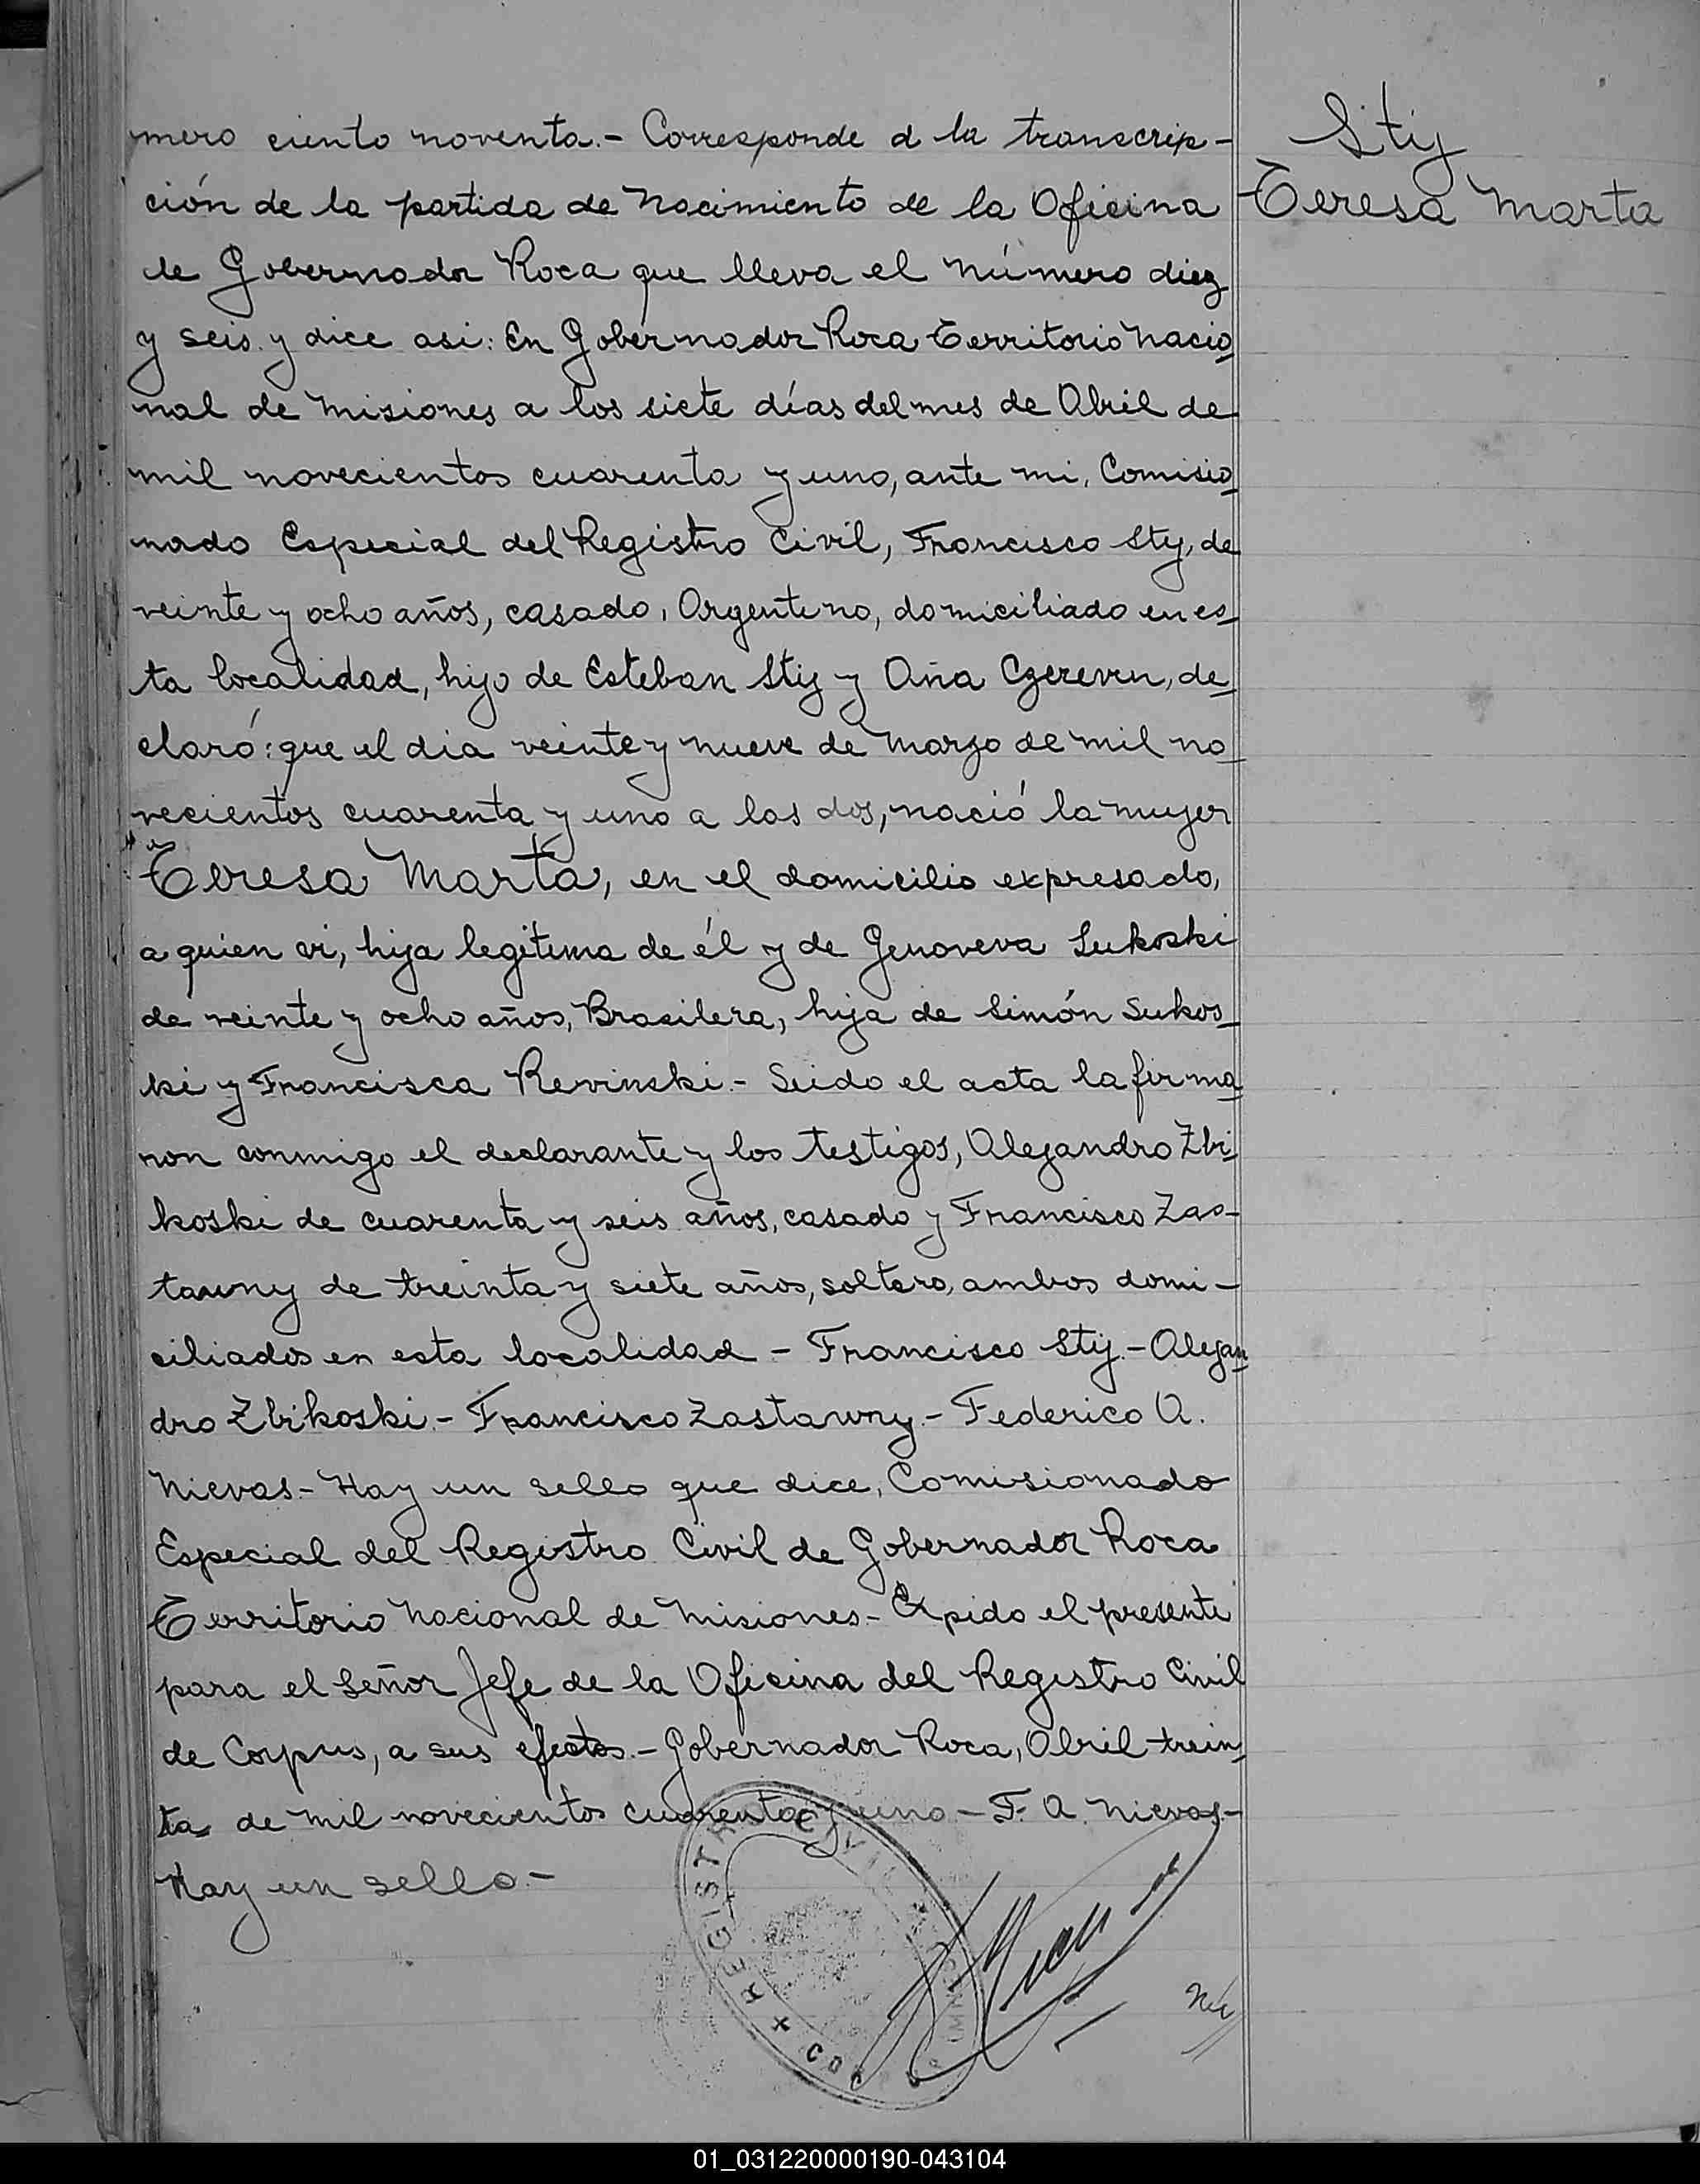 mero ciento noventa.- Corresponde a la transcrip-
ción de la partida de Nacimiento de la Oficina
de Gobernador Roca que lleva el número diez
y seis y dice asi: En Gobernador Roca Territorio Nacio
nal de Misiones a los siete días del mes de Abril de
mil novecientos cuarenta y uno, ante mi, Comisio
nado Especial del Registro Civil, Francisco Sty, de
veinte y ocho años, casado, Argentino, domiciliado en es
ta localidad, hijo de Esteban Stij y Aña Czereven, de
claró: que el dia veinte y nueve de Marzo de mil no
vecientos cuarenta y uno a las dos, nació la mujer
Teresa Marta, en el domicilio expresado,
a quien vi, hija legitima de él y de Genoveva Sukoski
de veinte y ocho años, Brasilera, hija de Simón Sukos
ki y Francisca Revinski.- Leido el acta la firma
ron conmigo el declarante y los testigos, Alejandro Zbi
koski de cuarenta y seis años, casado y Francisco Zas-
tawny de treinta y siete años, soltero, ambos domi-
ciliados en esta localidad - Francisco Stij.- Alejan
dro Zbikoski.- Francisco Zastawny.- Federico A.
Nievas.- Hay un sello que dice, Comisionado
Especial del Registro Civil de Gobernador Roca
Territorio Nacional de Misiones.- Expido el presente
para el Señor Jefe de la Oficina del Registro Civil
de Corpus, a sus efectos.- Gobernador Roca, Abril trein
ta de mil novecientos cuarenta y uno - F. A. Nievas.-
Hay un sello.-
Stij
Teresa Marta
REGISTRO CIVIL
Nú
01_031220000190-043104